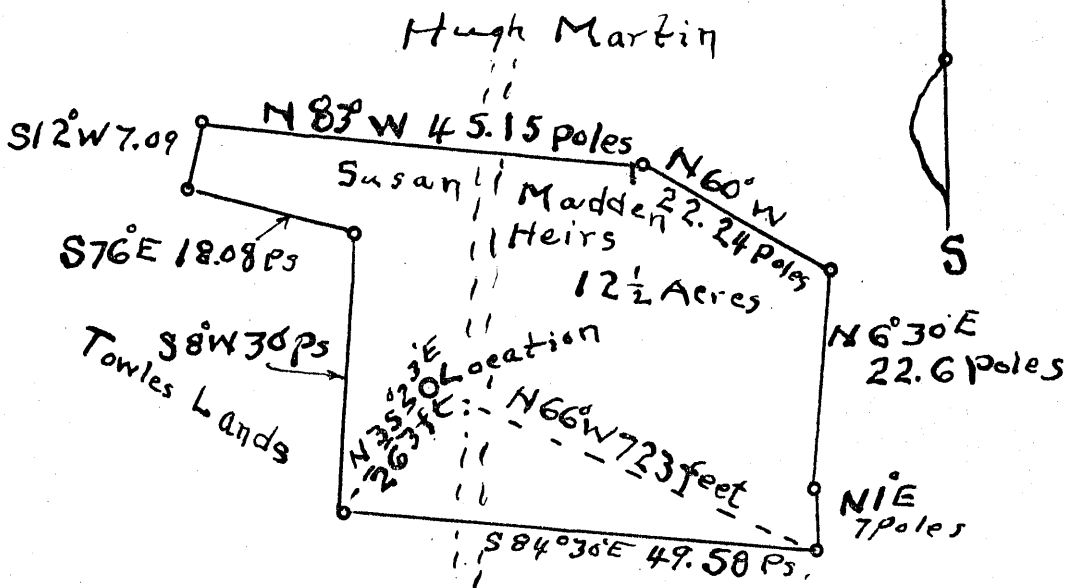 Hugh Martin
S12°W 7.09
N 83° W 45.15 Poles
N60°W
22.24 Poles
Susan Madden
Heirs
12½ Acres
S76°E 18.08 Ps
S
S8°W 30 Ps
Towles Lands
Location
N 6°30'E
22.6 Poles
263 ft
N66°W 723 feet
N1°E
7 Poles
S 84°30'E 49.58 Ps.